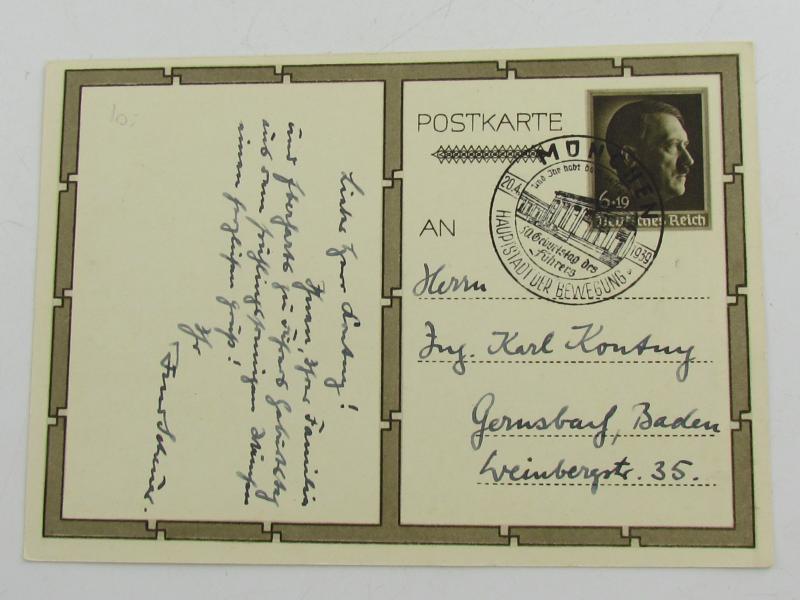 10.-
Liebe Herr Kontny!
Ihnen, Ihrer Familie
und Eberhards zu Führers Geburtstag
aus dem frühlingssonnigen München
einen herzlichen Gruß!
Ihr
POSTKARTE
AN
MÜNCHEN
und Ihr habt do
20.4.
1939
50. Geburtstag des
Führers
HAUPTSTADT DER BEWEGUNG
6+19
Deutsches Reich
Herrn
Ing. Karl Kontny
Gernsbach, Baden
Weinbergstr. 35.